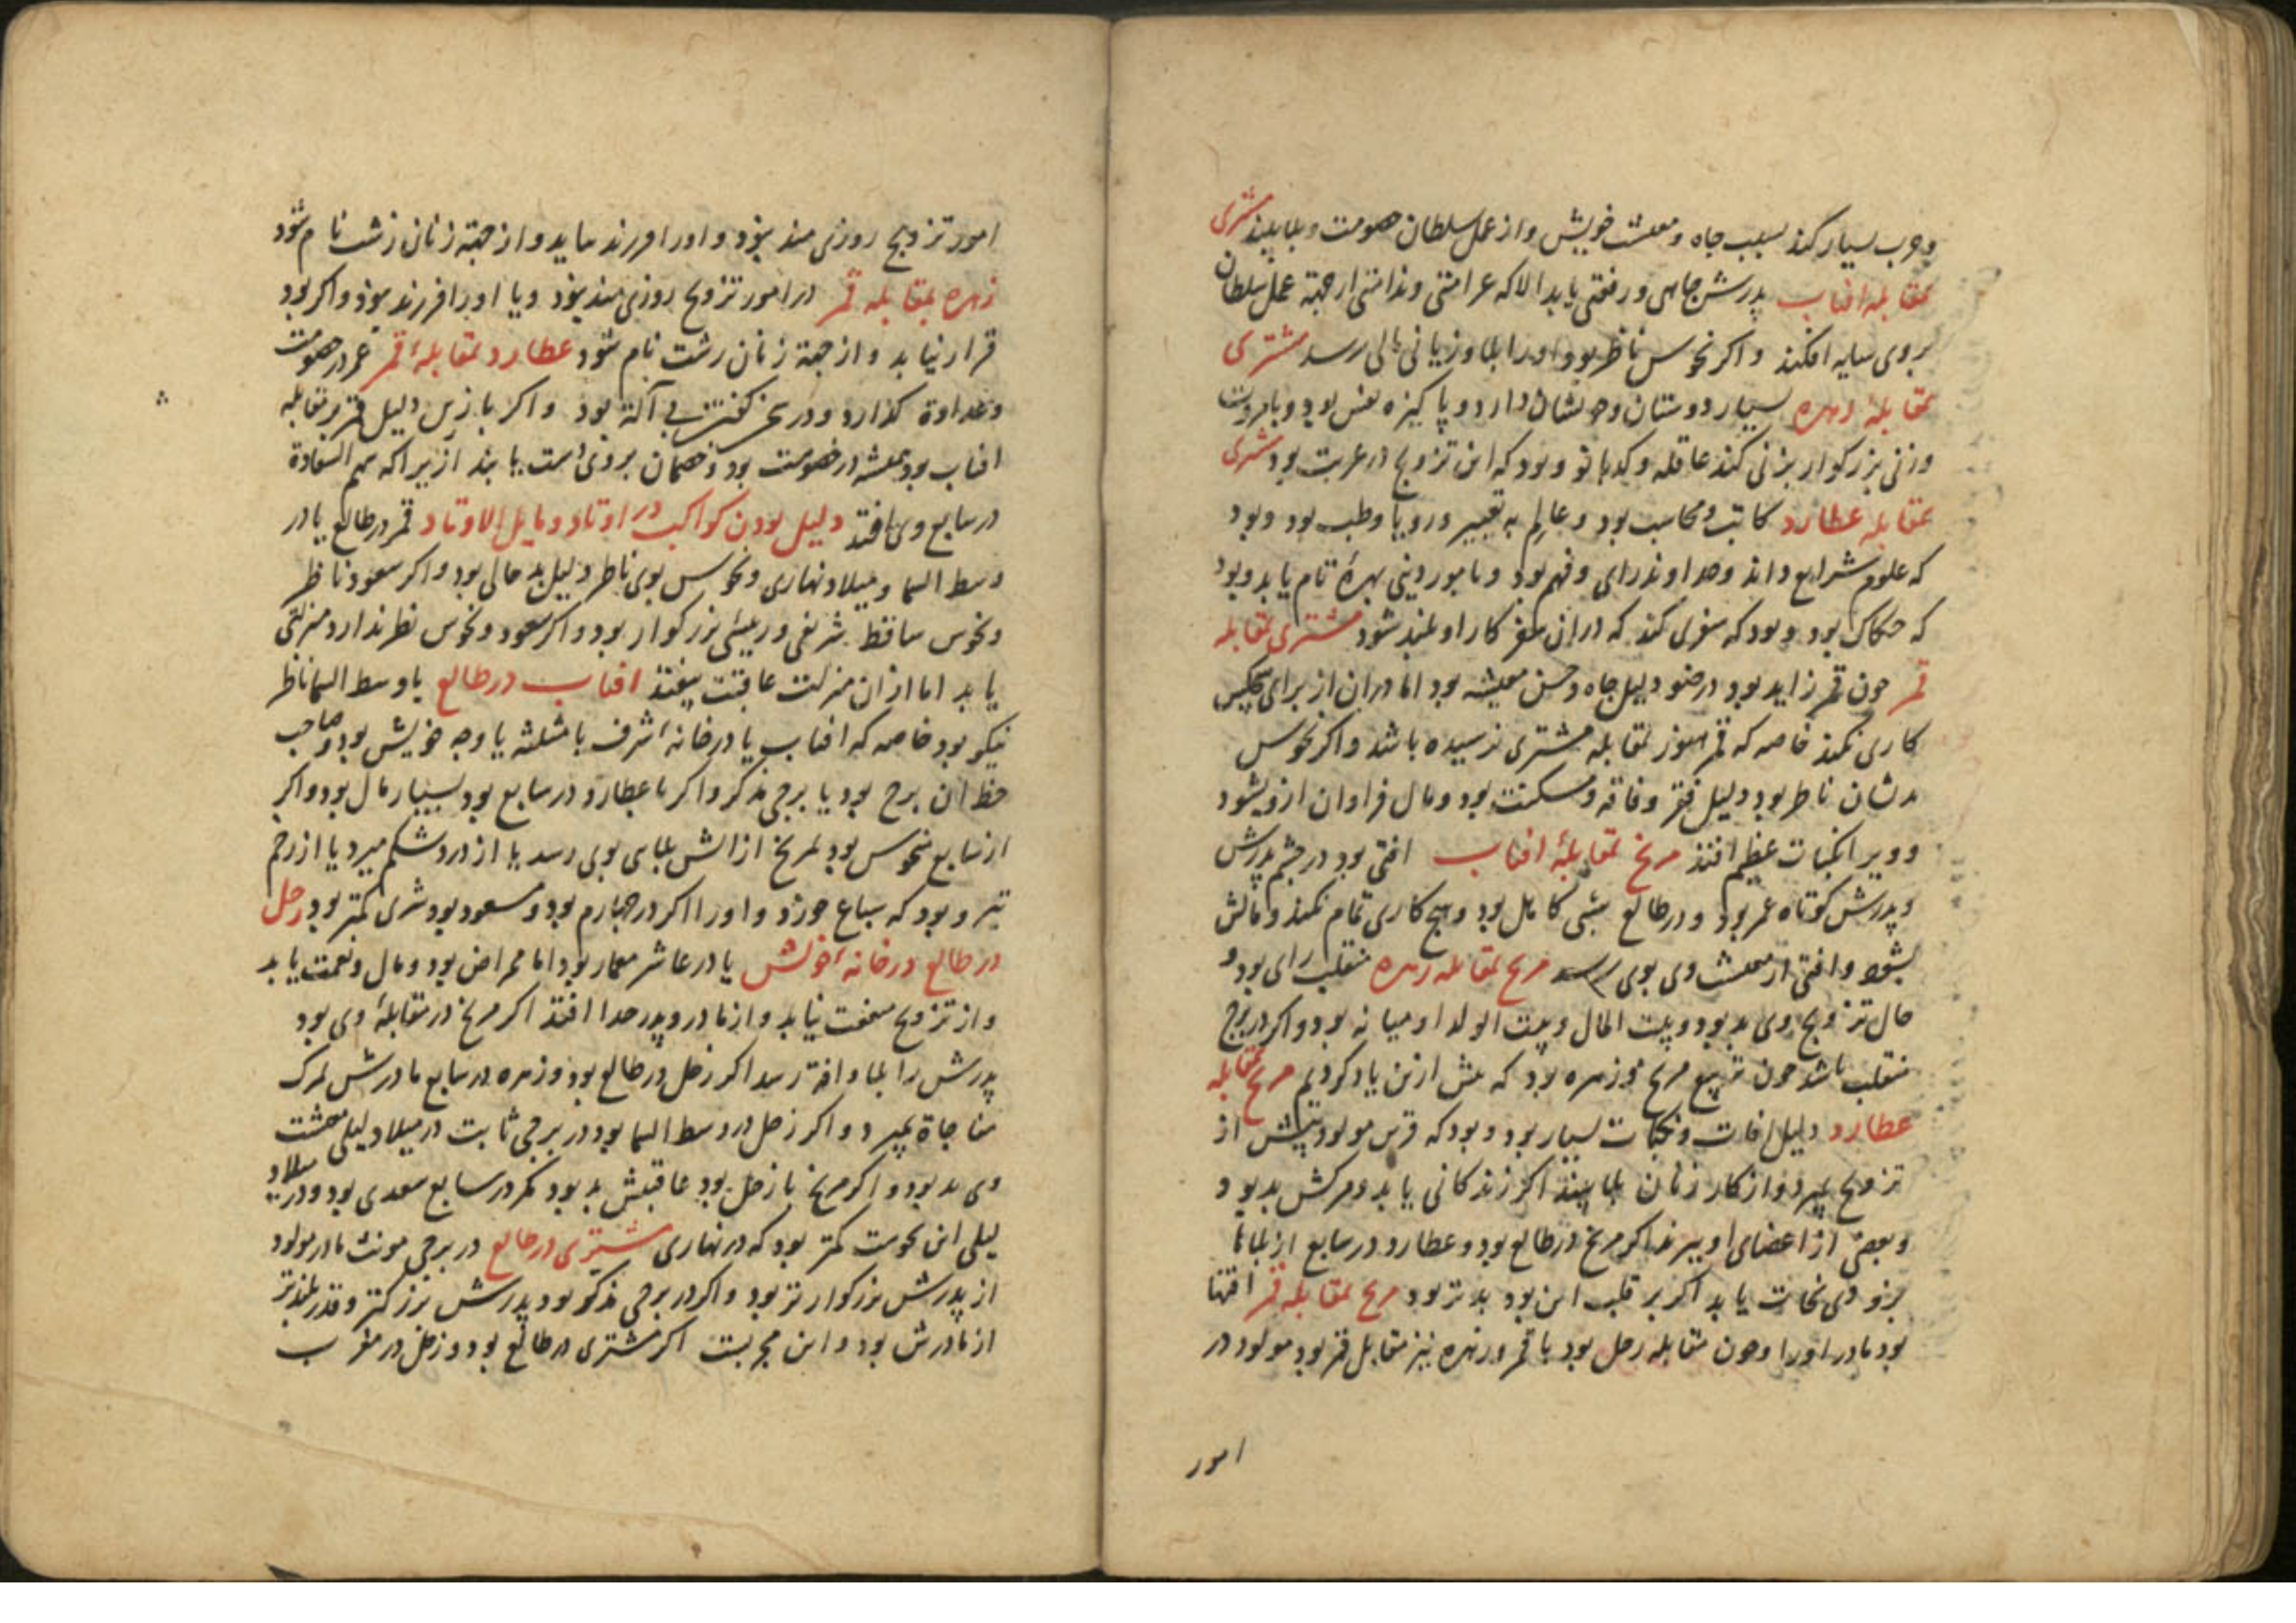 وحرب بسیار کند بسبب جاه و معیشت خویش و از عمل سلطان خصومت و بلا بیند مشتری
بمقابله افتاب پدرش جاهی و رفعتی یابد الا که غرامتی و ندامتی از جهة عمل سلطان
بروی سایه افکند و اکر نحوس ناظر بود او را بلا و زیانی مالی رسد مشتری
بمقابلهٔ زهره بسیار دوستان و خویشان دارد و پاکیزه نفس بود و بامروت
و زنی بزرکوار بزنی کند عاقله و کدبانو و بود که این تزویج در غربت بود مشتری
بمقابله عطارد کاتب و محاسب بود و عالم به تعبیر و رویا و طب بود و بود
که علوم شرایع داند و خداوند رای و فهم بود و بامور دینی بهرهٔ تام یابد و بود
که حکاک بود و بود که سفری کند که در ان سفر کار او بلند شود مشتری بمقابله
قمر چون قمر زاید بود در ضو دلیل جاه و حسن معیشه بود اما در ان از برای هیچکس
کاری نکند خاصه که قمر هنوز بمقابله مشتری نرسیده باشد و اکر نحوس
بدیشان ناظر بود دلیل فقر و فاقه و مسکنت بود و مال فراوان ازو بشود
و ویرا نکبات عظیم افتد مریخ بمقابلهٔ افتاب افتی بود در چشم پدرش
و پدرش کوتاه عمر بود و در طالع شبی کاهل بود و هیچ کاری تمام نکند و مالش
بشود و افتی از معیشت وی بوی رسد مریخ بمقابله زهره منقلب رای بود و
حال تزویج وی بد بود و بیت المال و بیت الولد او میانه بود و اکر در برج
منقلب باشد چون تربیع مریخ و زهره بود که پیش ازین یاد کردیم مریخ بمقابله
عطارد دلیل افات و نکبات بسیار بود و بود که قرین مولود پیش از
تزویج بمیرد و از کار زنان بلا بیند اکر زندکانی یابد و مرکش بد بود
و بعضی از اعضای او ببرند اکر مریخ در طالع بود و عطارد در سابع از بلاها
بزودی نجات یابد اکر بر قلب این بود بدتر بود مریخ بمقابله قمر افتها
بود مادر او را و چون مقابله زحل بود با قمر و زهره نیز مقابل قمر بود مولود در
امور
امور تزویج روزی مند نبود و او را فرزند نیاید و از جهة زنان زشت نام شود
زهره بمقابله قمر در امور تزویج روزی مند نبود و یا او را فرزند نبود و اکر بود
قرار نیابد و از جهة زنان زشت نام شود عطارد بمقابلهٔ قمر عمر در خصومت
و عداوة کذارد و در سخن کفتن بی آلة بود و اکر با زین دلیل قمر بر مقابله
افتاب بود همیشه در خصومت بود و خصمان بروی دست یابند ازیراکه سهم السعادة
در سابع وی افتد دلیل بودن کواکب در اوتاد و مایل الاوتاد قمر در طالع یا در
وسط السما و میلاد نهاری و نحوس بوی ناظر دلیل بد حالی بود و اکر سعود ناظر
و نحوس ساقط شریفی و رییسی بزرکوار بود و اکر سعود و نحوس نظر ندارد منزلتی
یابد اما از ان منزلت عاقبت بیفتد افتاب در طالع یا وسط السما ناظر
نیکو بود خاصه که افتاب یا در خانه اشرف یا مثلثه یا وجه خویش بود و صاحب
حظ ان برج بود یا برجی مذکر و اکر با عطارد در سابع بود بسیار مال بود و اکر
از سابع منحوس بود بمریخ از اتش بلای بوی رسد یا از درد شکم میرد یا از زخم
تیر و بود که سباع خورد و او را اکر در چهارم بود و مسعود بود شری کمتر بود زحل
در طالع در خانه خویش یا در عاشر معمار بود اما ممراض بود و مال و نعمت یابد
و از تزویج منفعت نیابد و از مادر و پدر جدا افتد اکر مریخ در مقابلهٔ وی بود
پدرش را بلا و افة رسد اکر زحل در طالع بود و زهره در سابع مادرش بمرک
مفاجاة بمیرد و اکر زحل در وسط السما بود در برجی ثابت در میلاد لیلی معیشت
وی بد بود و اکر مریخ با زحل بود عاقبتش بد بود مکر در سابع سعدی بود و در میلاد
لیلی این نحوست کمتر بود که در نهاری مشتری در طالع در برجی مونث مادر مولود
از پدرش بزرکوارتر بود و اکر در برجی مذکر بود پدرش بزرکتر و قدر بلندتر
از مادرش بود و این مجربست اکر مشتری در طالع بود و زحل در مغرب